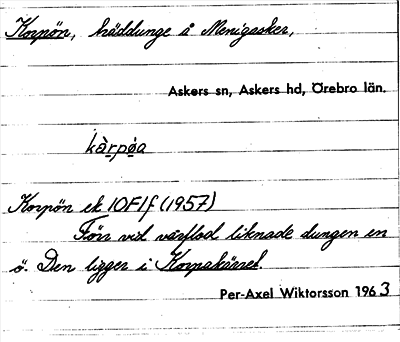 Korpön, träddunge å Menigasker,
Askers sn, Askers hd, Örebro län.
kàrpøa
Korpön ek 10F1f (1957)
Förr vid vårflod liknade dungen en
ö. Den ligger i Korpakärret.
Per-Axel Wiktorsson 1963